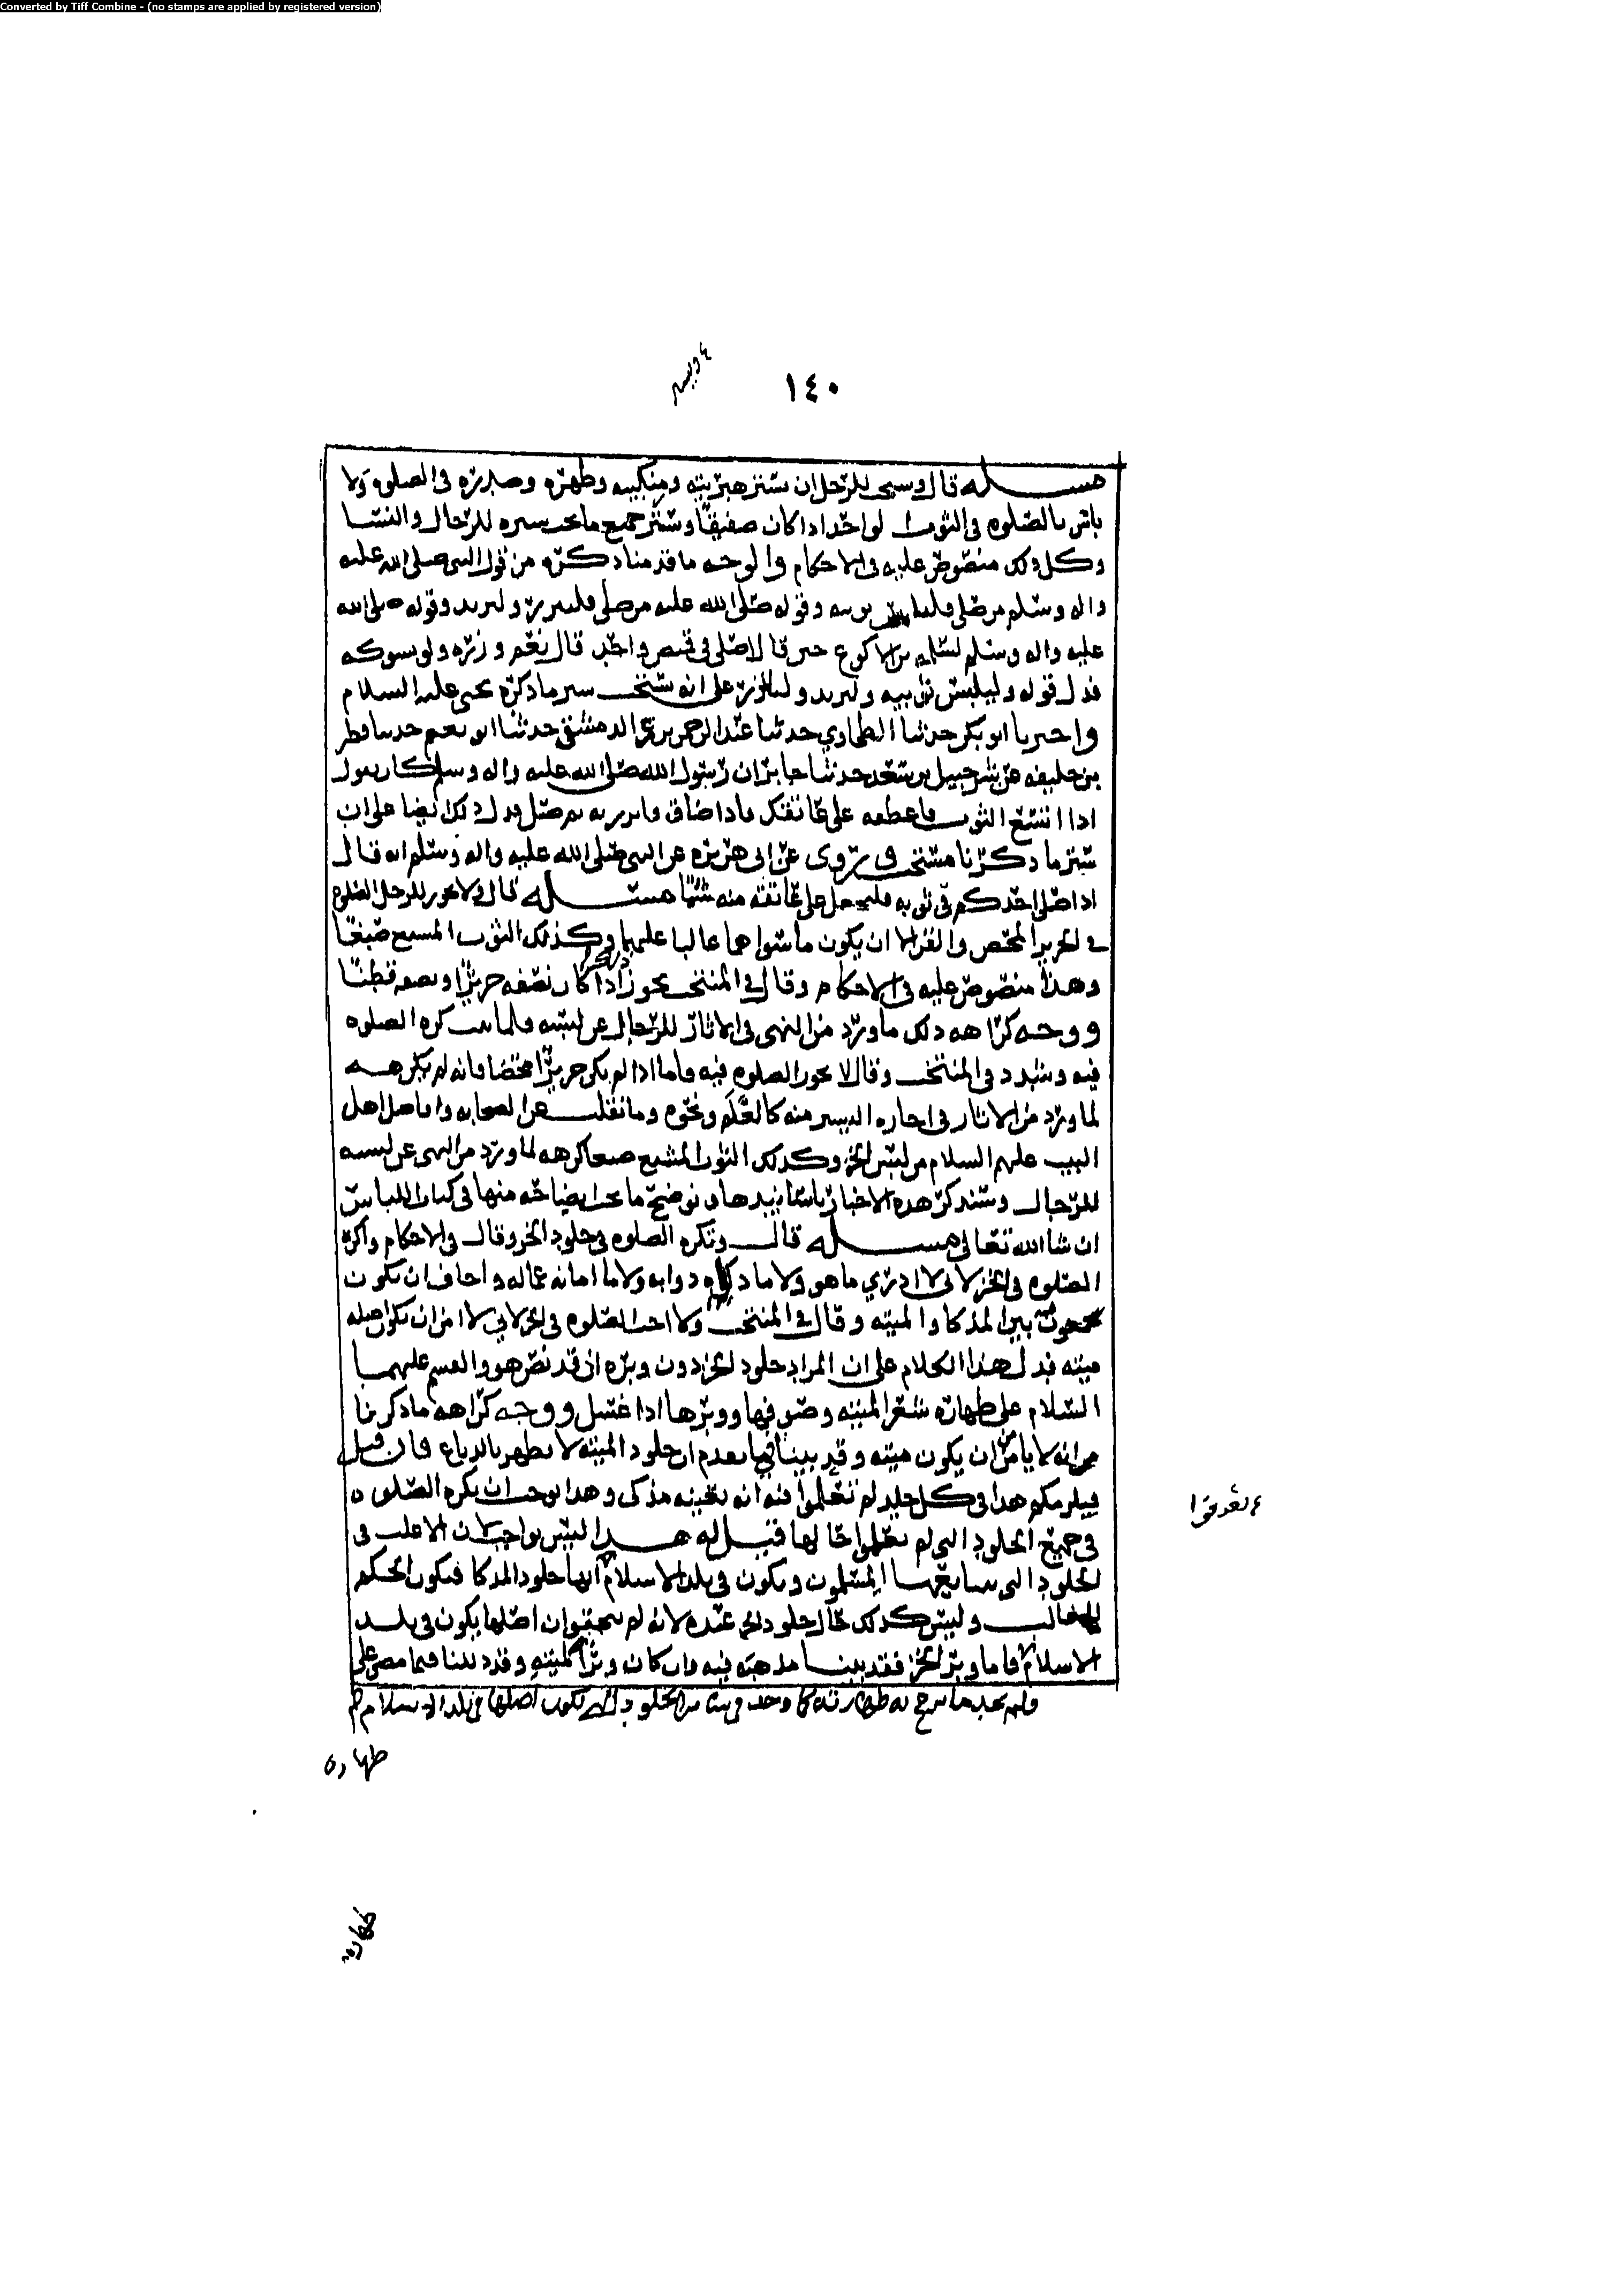 Converted by Tiff Combine - (no stamps are applied by registered version)
١٤٠
مسله قال ويستحب للرجل ان يستر هبريته ومنكبيه وظهره وصدره في الصلوه ولا
باس بالصلوه في الثوب الواحد اذا كان صفيقا وستر جميع ما تحت سره للرجال والنسا
وكل ذلك منصوص عليه في الاحكام والوجه ما قدمنا ذكره من قول النبي صلى الله عليه
واله وسلم من صلى فليلبس ثوبيه وقوله صلى الله عليه من صلى فليتزر وليرتد وقوله صلى الله
عليه واله وسلم لسلمه بن الاكوع حين قال اصلي في قميص واحد قال نعم وزره ولو بشوكه
فدل قوله وليلبس ثوبيه وليرتد وليتزر على انه يستحب ستر ما ذكره يحيى عليه السلام
واخبرنا ابو بكر حدثنا الطحاوي حدثنا عبد الرحمن بن عمر الدمشقي حدثنا ابو نعيم حدثنا فطر
بن خليفه عن شرحبيل بن سعد حدثنا جابر ان رسول الله صلى الله عليه واله وسلم كان يقول
اذا اتسع الثوب فاعطفه على عاتقك فاذا ضاق فاتزر به ثم صل فدل ذلك ايضا على ان
ستر ما ذكرنا مستحب وروى عن ابي هريره عن النبي صلى الله عليه واله وسلم انه قال
اذا صلى احدكم في ثوبه فليجعل على عاتقه منه شيئا مسله قال ولا يجوز للرجل الصلوه
في الحرير المحض والقز الا ان يكون ما سواهما غالبا عليهما وكذلك الثوب المشبع صبغا
وهذا منصوص عليه في الاحكام وقال في المنتخب يجوز اذا كان نصفه حريرا ونصفه قطنا
ووجه كراهه ذلك ما ورد من النهي في الاثار للرجال عن لبسه فلما كره الصلوه
فيه وشدد في المنتخب وقال لا يجوز الصلوه فيه فاما اذا لم يكن حريرا محضا فانه لم يكرهه
لما ورد من الاثار في اجازه اليسير منه كالعلم ونحوه وما نقل عن الصحابه وافاضل اهل
البيت عليهم السلام من لبس الخز وكذلك الثوب المشبع صبغا كرهه لما ورد من النهي عن لبسه
للرجال وسنذكر هذه الاخبار باسانيدها ونوضح ما يجب ايضاحه منها في كتاب اللباس
ان شا الله تعالى مسله قال وتكره الصلوه في جلود الخز وقال في الاحكام واكره
الصلوه في الخز لاني لا ادري ما هو ولا ما ذكاه دوابه ولا ما امانه عماله واخاف ان يكون
يجمعون بين المذكا والميته وقال في المنتخب ولا احب الصلوه في الخز لاني لا امن ان يكون اصله
ميته فدل هذا الكلام على ان المراد جلود الخز دون وبره اذ قد نص هو والقسم عليهما
السلام على طهاره شعر الميته وصوفها ووبرها اذا غسل ووجه كراهه ما ذكرنا
من انه لا يامن ان يكون ميته وقد بينا فيما تقدم ان جلود الميته لا يطهر بالدباغ فان قيل
فيلزمكم هذا في كل جلد لم تعلموا فيه انه بعينه مذكى وهذا يوجب ان يكره الصلوه
في جميع الجلود التي لم تعلموا حالها قيل له هذا ليس بواجب لان الاغلب في
الجلود التي يتبايعها المسلمون ويكون في بلد الاسلام انها جلود المذكا فيكون الحكم
للغالب وليس كذلك حال جلود الخز عنده لانه لم يتحقق ان اصلها يكون في بلد
الاسلام فاما وبر الخز فقد بينا مذهبه فيه وان كان وبرا لميته وقد دللنا فيما مضى على
طهاره